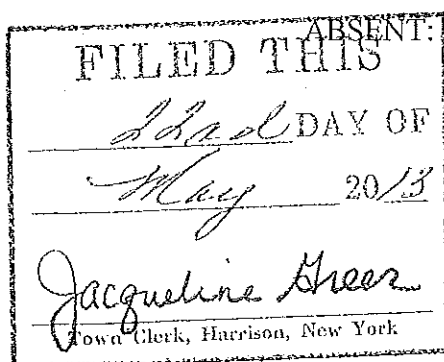 ABSENT:
FILED THIS
22nd DAY OF
May 2013
Jacqueline Greer
Town Clerk, Harrison, New York